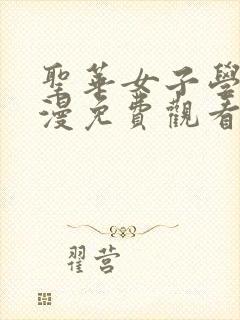 聖華女子學
漫免費觀看
翟营